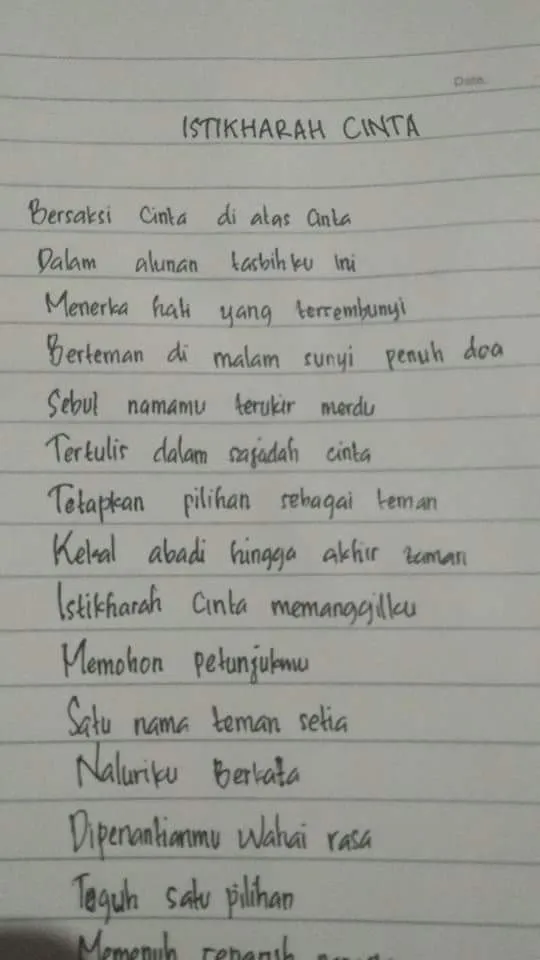 Date.
ISTIKHARAH CINTA
Bersaksi Cinta di atas Cinta
Dalam alunan tasbihku Ini
Menerka hati yang tersembunyi
Berteman di malam sunyi penuh doa
Sebut namamu terukir merdu
Tertulis dalam sajadah cinta
Tetapkan pilihan sebagai teman
Kekal abadi hingga akhir zaman
Istikharah Cinta memanggilku
Memohon petunjukmu
Satu nama teman setia
Naluriku Berkata
Dipenantianmu Wahai rasa
Teguh satu pilihan
Memenuh separuh